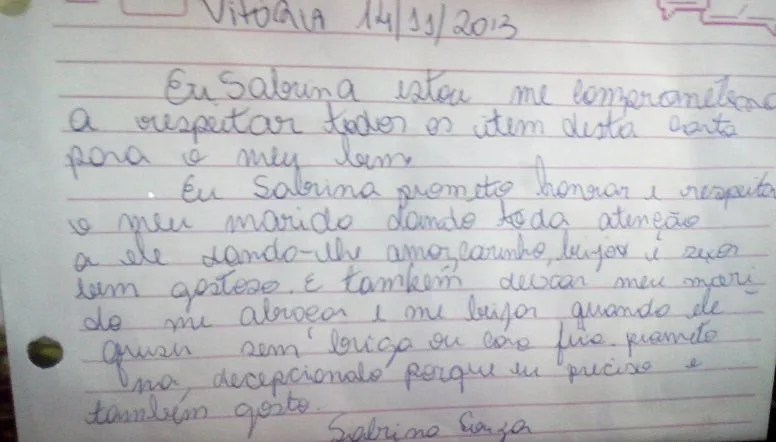 Vitória 14/11/2013
Eu Sabrina estou me
a respeitar todos os item desta carta
para o meu bem.
Eu Sabrina prometo honrar e respeitar
o meu marido dando toda atenção
a ele dando-lhe amor, carinho, beijos e sexo
bem gostoso. E também deixar meu mari
do me abraçar e me beijar quando ele
quiser sem briga ou cara feia. prometo
não decepcionalo porque eu preciso e
também gosto.
Sabrina Souza